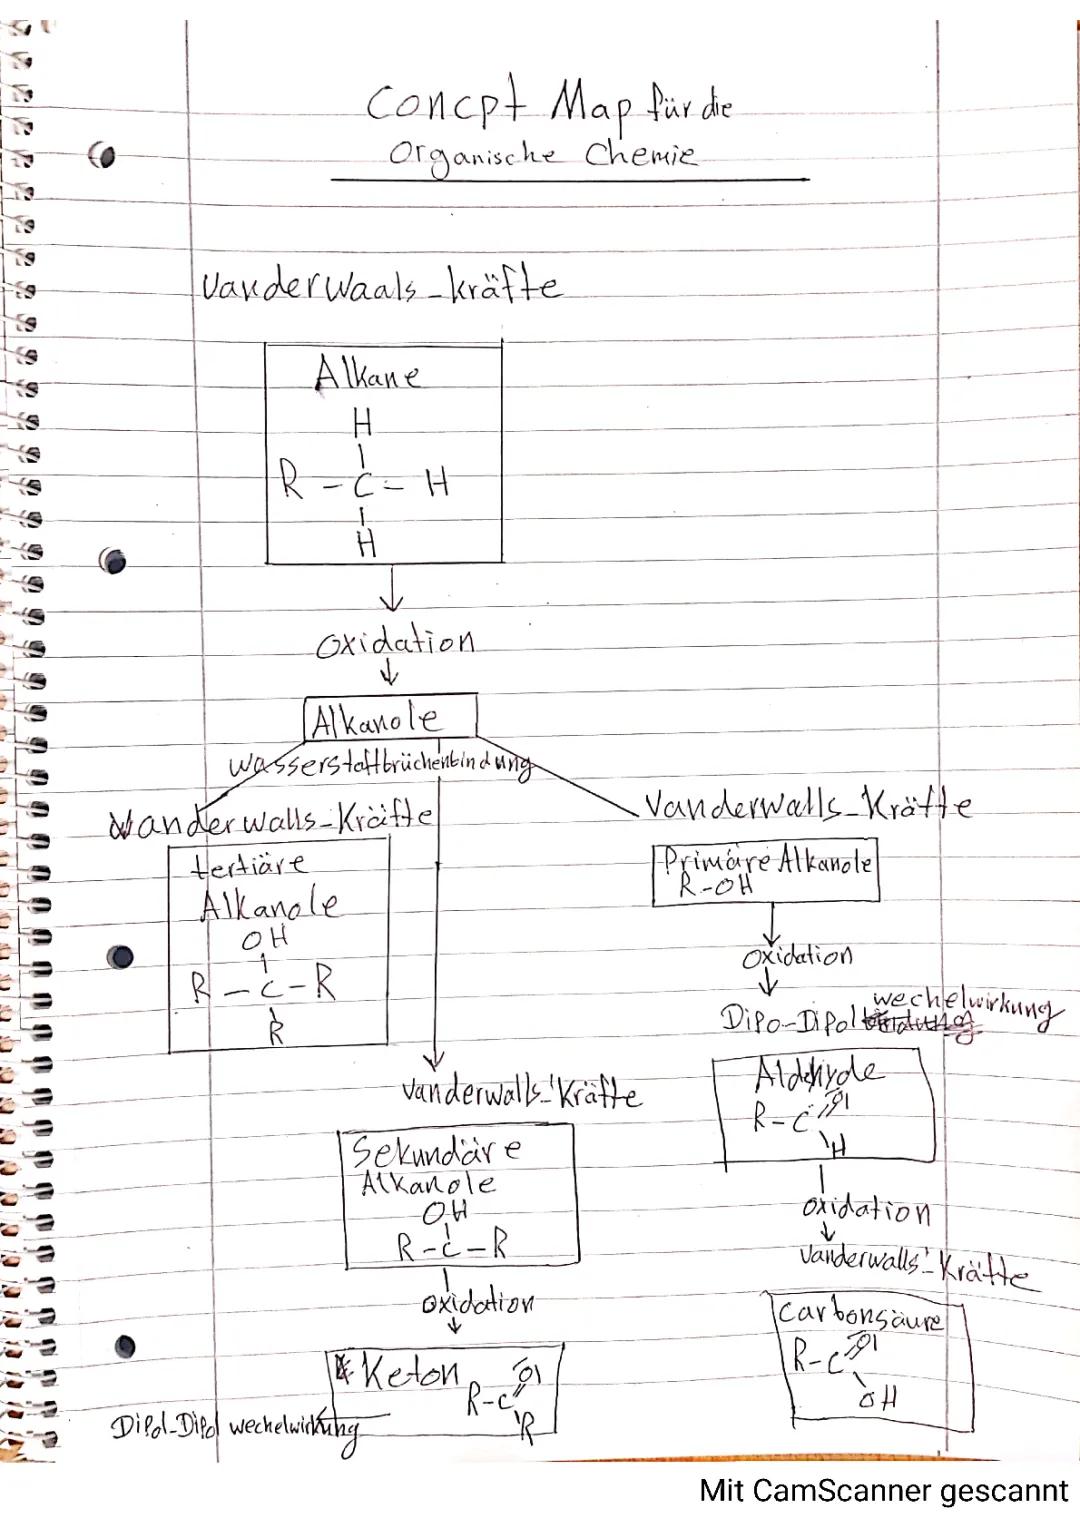 Concpt Map für die
Organische Chemie
Vanderwaals-kräfte
Alkane
H
R - C - H
H
Oxidation
Alkanole
wasserstoffbrüchenbindung
Vanderwalls-Kräfte
tertiäre
Alkanole
OH
R - C - R
R
Vanderwalls-Kräfte
Primäre Alkanole
R-OH
Oxidation
wechelwirkung
Dipo-Dipol
Aldehyde
R-C
O
H
oxidation
Vanderwalls-Kräfte
Carbonsäure
R-C
O
OH
Vanderwalls-Kräfte
Sekundäre
Alkanole
OH
R-C-R
oxidation
Keton
O
R-C
R
Dipol-Dipol wechelwirkung
Mit CamScanner gescannt